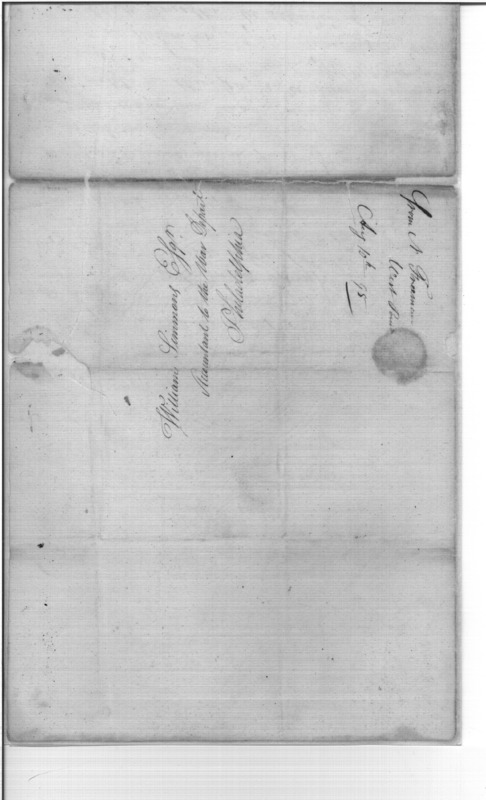 William Simmons Esqr.
Accountant to the War Depart.
Philadelphia
From N. Freeman
West
Aug 10th 95